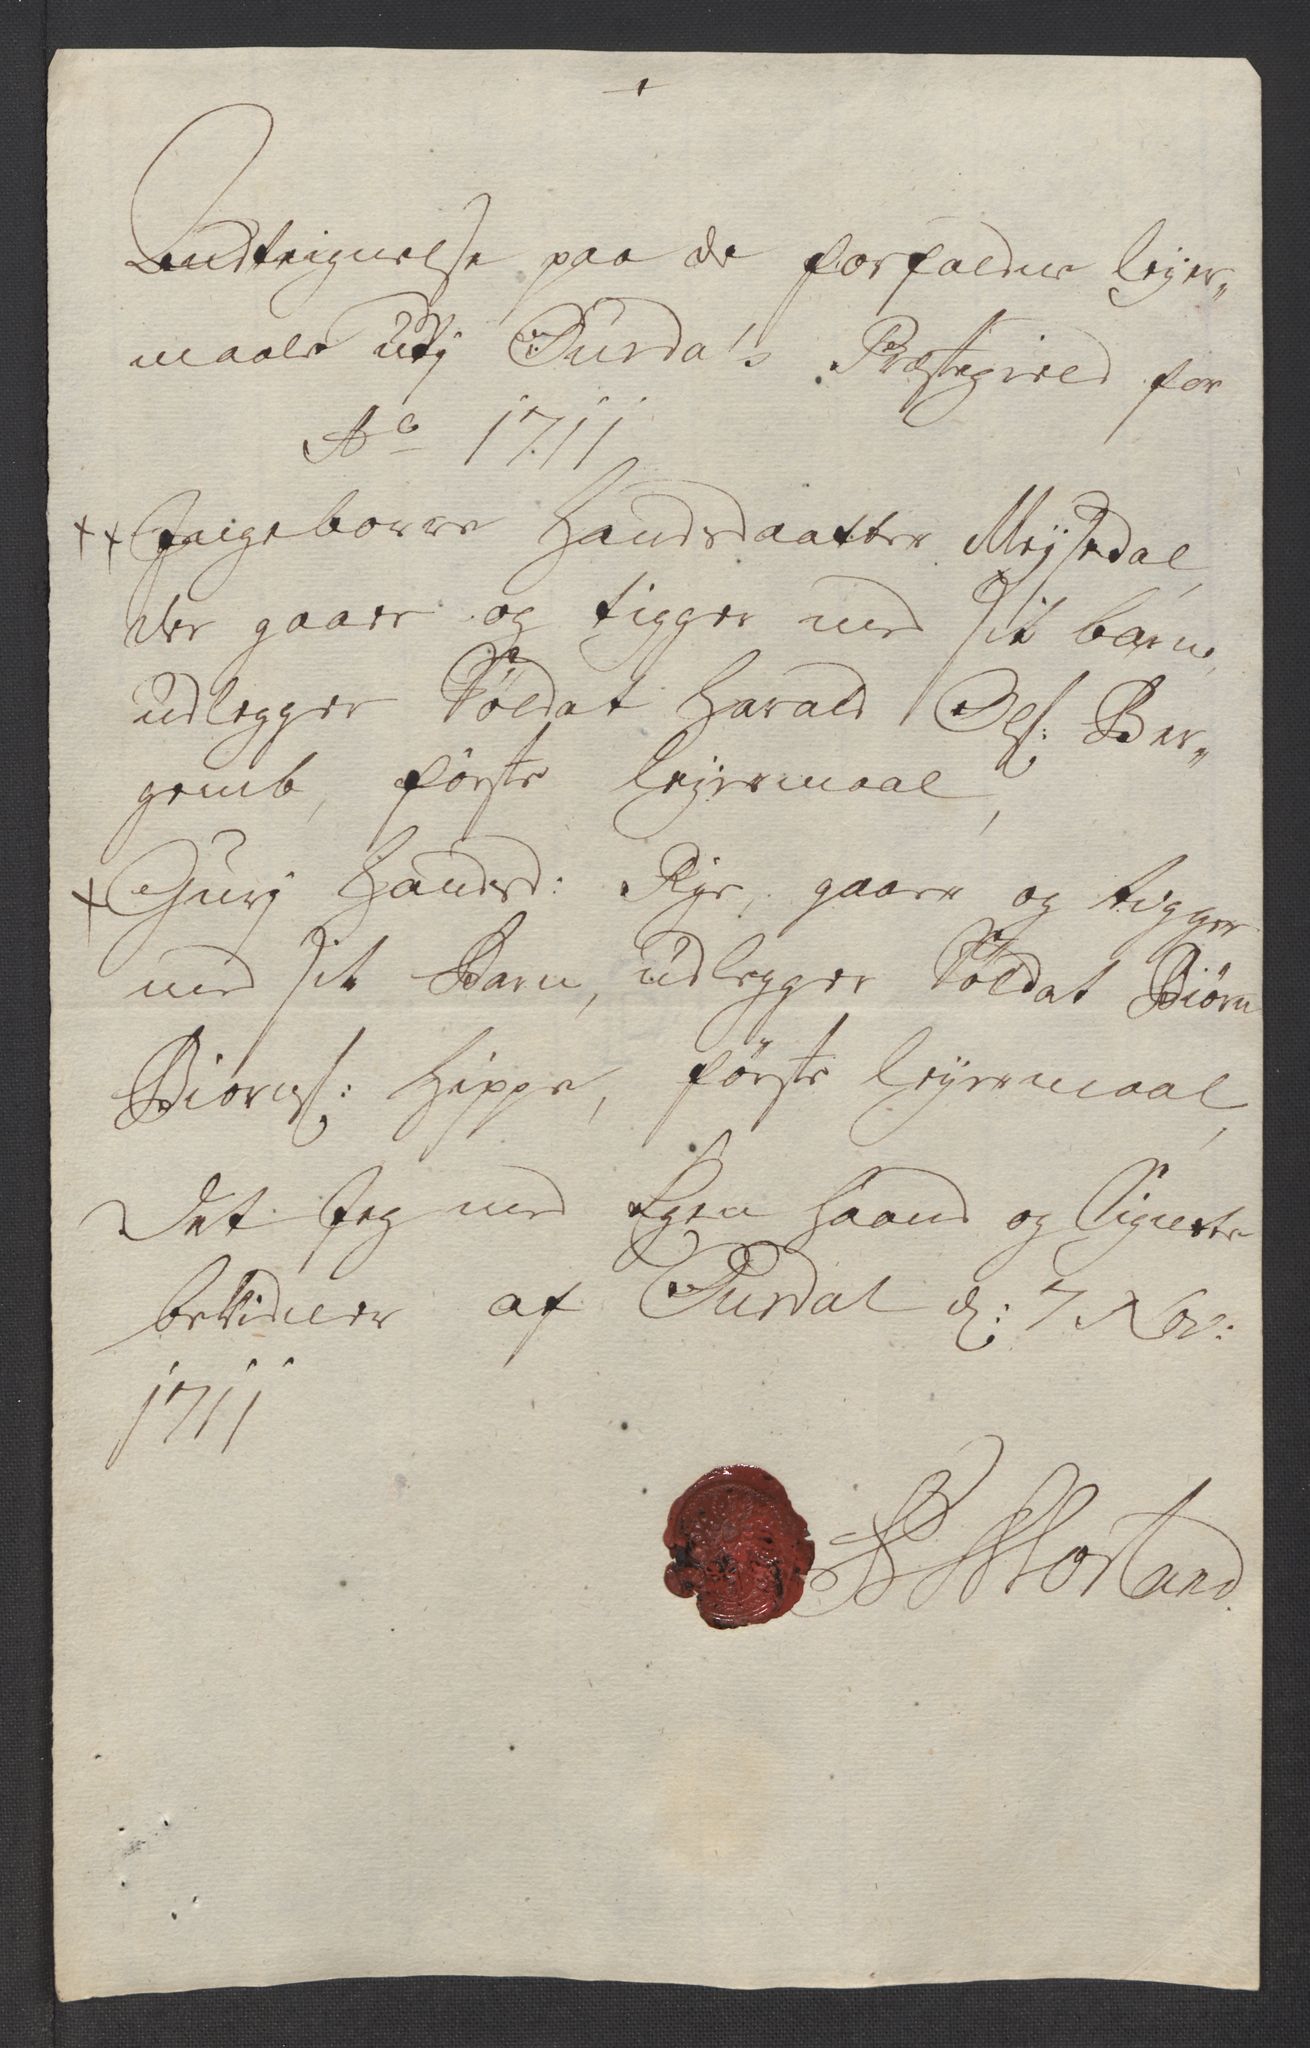 Andteignelse paa de forfaldne leyer„
maale udj Surda's Præstegield for
Ao 1711
×× Ingeborre Handsdaatter Meysedal
der gaaer og tigger med sit barn,
udlegger Soldat Harald Ols: Ber„
gemb, første leyermaal,
× Gurj Handsd: Rye, gaaer og tigger
med sit Barn, udlegger Soldat Biørn
Biørns: Hippe, første leyermaal,
Det Jeg med Egen haand og Signete
bekiender af Surdal d: 7 Nov:
1711